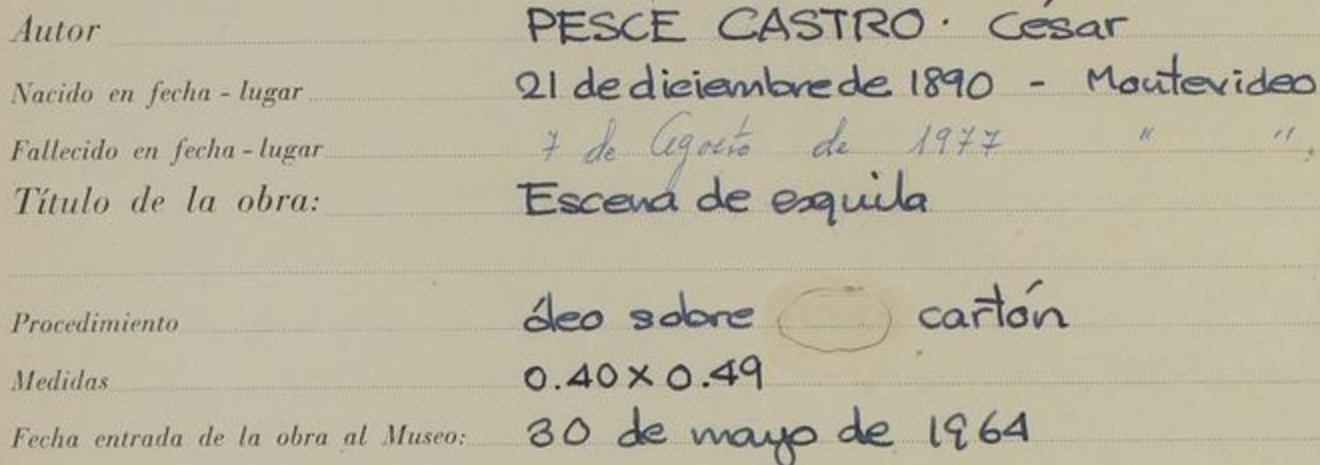 Autor PESCE CASTRO · César
Nacido en fecha - lugar 21 de diciembre de 1890 - Montevideo
Fallecido en fecha - lugar 7 de Agosto de 1977 " "
Título de la obra: Escena de esquila
Procedimiento óleo sobre cartón
Medidas 0.40 x 0.49
Fecha entrada de la obra al Museo: 30 de mayo de 1964